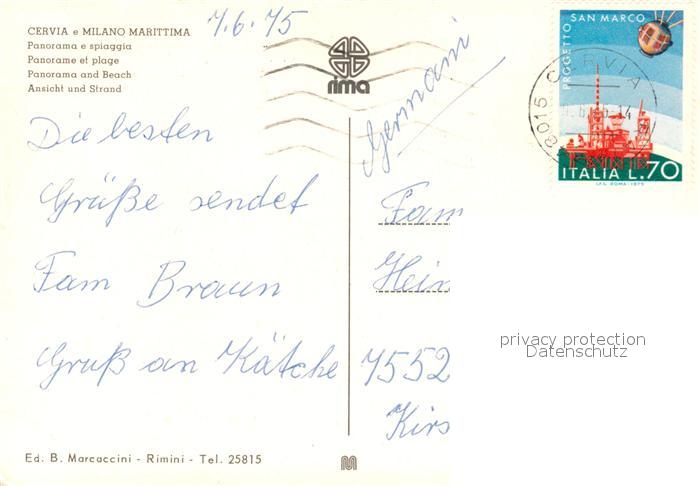 CERVIA e MILANO MARITTIMA
Panorama e spiaggia
Panorame et plage
Panorama and Beach
Ansicht und Strand
7.6.75
rima
Die besten
Grüße sendet
Fam Braun
Gruß an Kätche
Ed. B. Marcaccini - Rimini - Tel. 25815
Germani
Fam
Hein
7552
Kirs
PROGETTO SAN MARCO
48015 CERVIA
ITALIA L.70
I.P.S. ROMA - 1975
privacy protection
Datenschutz